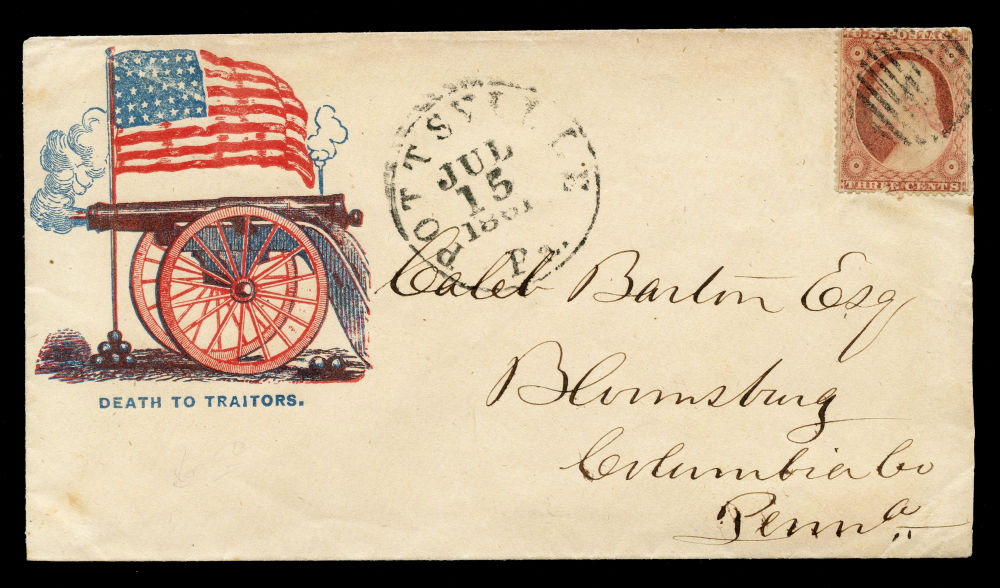 U.S. POSTAGE
THREE CENTS
POTTSVILLE
JUL
15
1861
Pa.
DEATH TO TRAITORS.
Caleb Barton Esq
Bloomsburg
Columbia Co
Penna